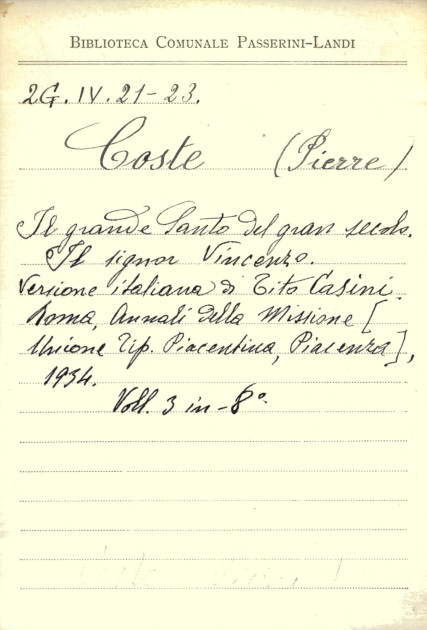 BIBLIOTECA COMUNALE PASSERINI-LANDI
2G. IV. 21-23.
Coste (Pierre)
Il grande Santo del gran secolo.
Il signor Vincenzo.
Versione italiana di Tito Casini.
Roma, Annali della Missione [
Unione Tip. Piacentina, Piacenza],
1934.
Voll. 3 in-8º.